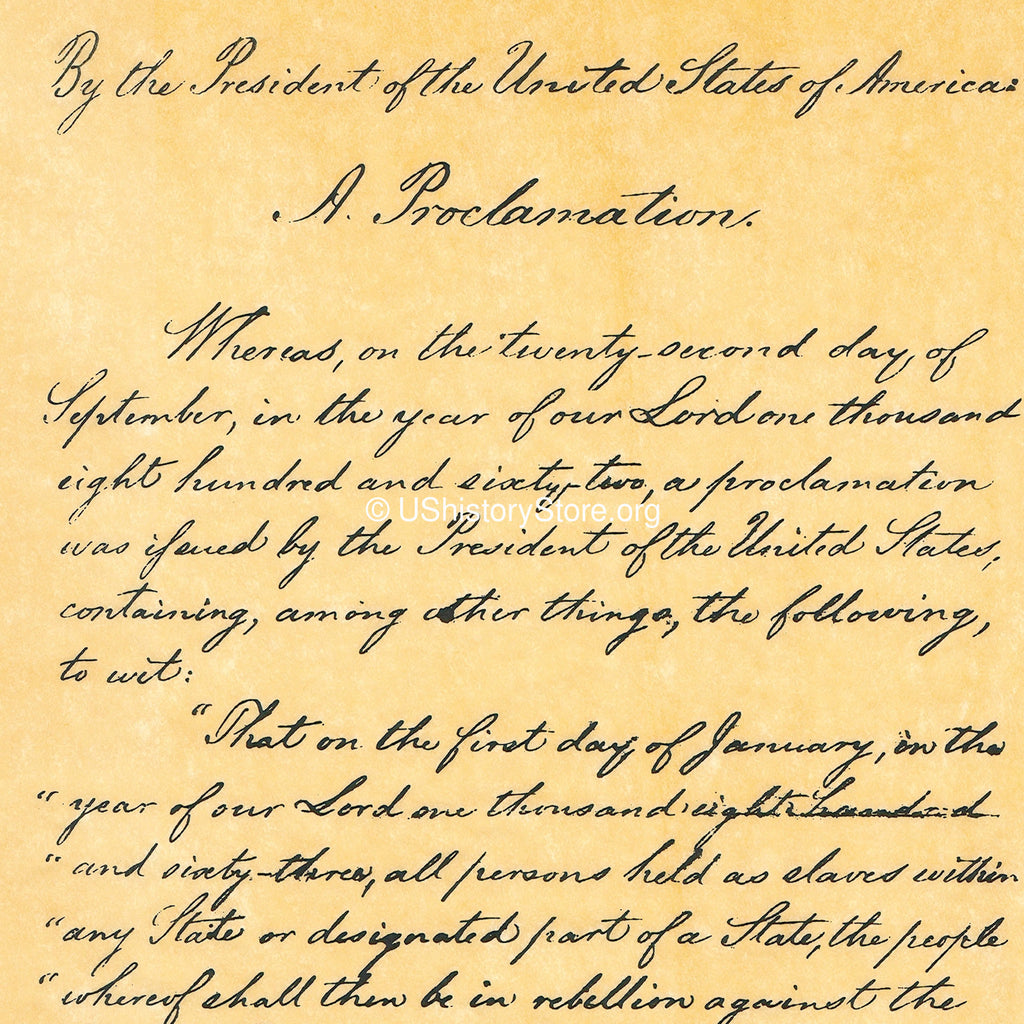 By the President of the United States of America:
A Proclamation.
Whereas, on the twenty-second day of
September, in the year of our Lord one thousand
eight hundred and sixty-two, a proclamation
© UShistoryStore.org
was issued by the President of the United States,
containing, among other things, the following,
to wit:
"That on the first day of January, in the
" year of our Lord one thousand eight hundred
" and sixty-three, all persons held as slaves within
" any State or designated part of a State, the people
" whereof shall then be in rebellion against the